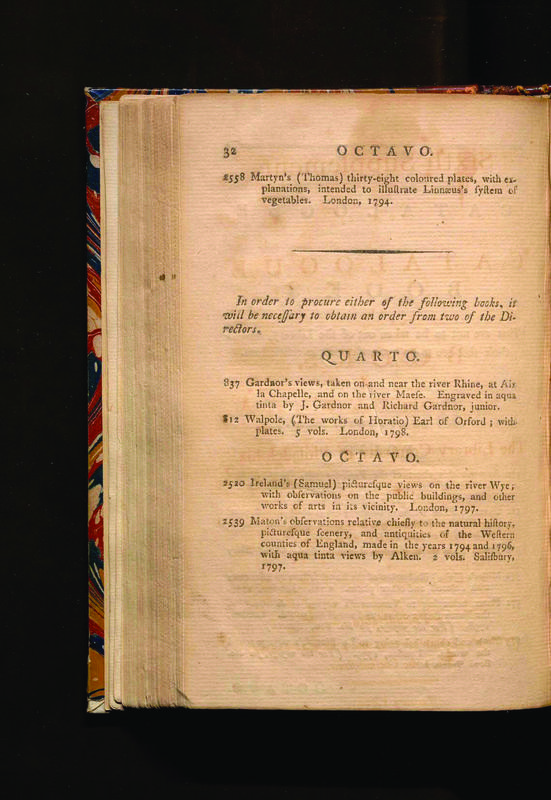 32 OCTAVO.
2558 Martyn's (Thomas) thirty-eight coloured plates, with ex-
planations, intended to illuſtrate Linnæus's ſyſtem of
vegetables. London, 1794.
In order to procure either of the following books, it
will be neceſſary to obtain an order from two of the Di-
rectors.
QUARTO.
837 Gardnor's views, taken on and near the river Rhine, at Aix
la Chapelle, and on the river Maeſe. Engraved in aqua
tinta by J. Gardnor and Richard Gardnor, junior.
812 Walpole, (The works of Horatio) Earl of Orford; with
plates. 5 vols. London, 1798.
OCTAVO.
2520 Ireland's (Samuel) pictureſque views on the river Wye;
with obſervations on the public buildings, and other
works of arts in its vicinity. London, 1797.
2539 Maton's obſervations relative chiefly to the natural hiſtory,
pictureſque ſcenery, and antiquities of the Weſtern
counties of England, made in the years 1794 and 1796,
with aqua tinta views by Alken. 2 vols. Saliſbury,
1797.